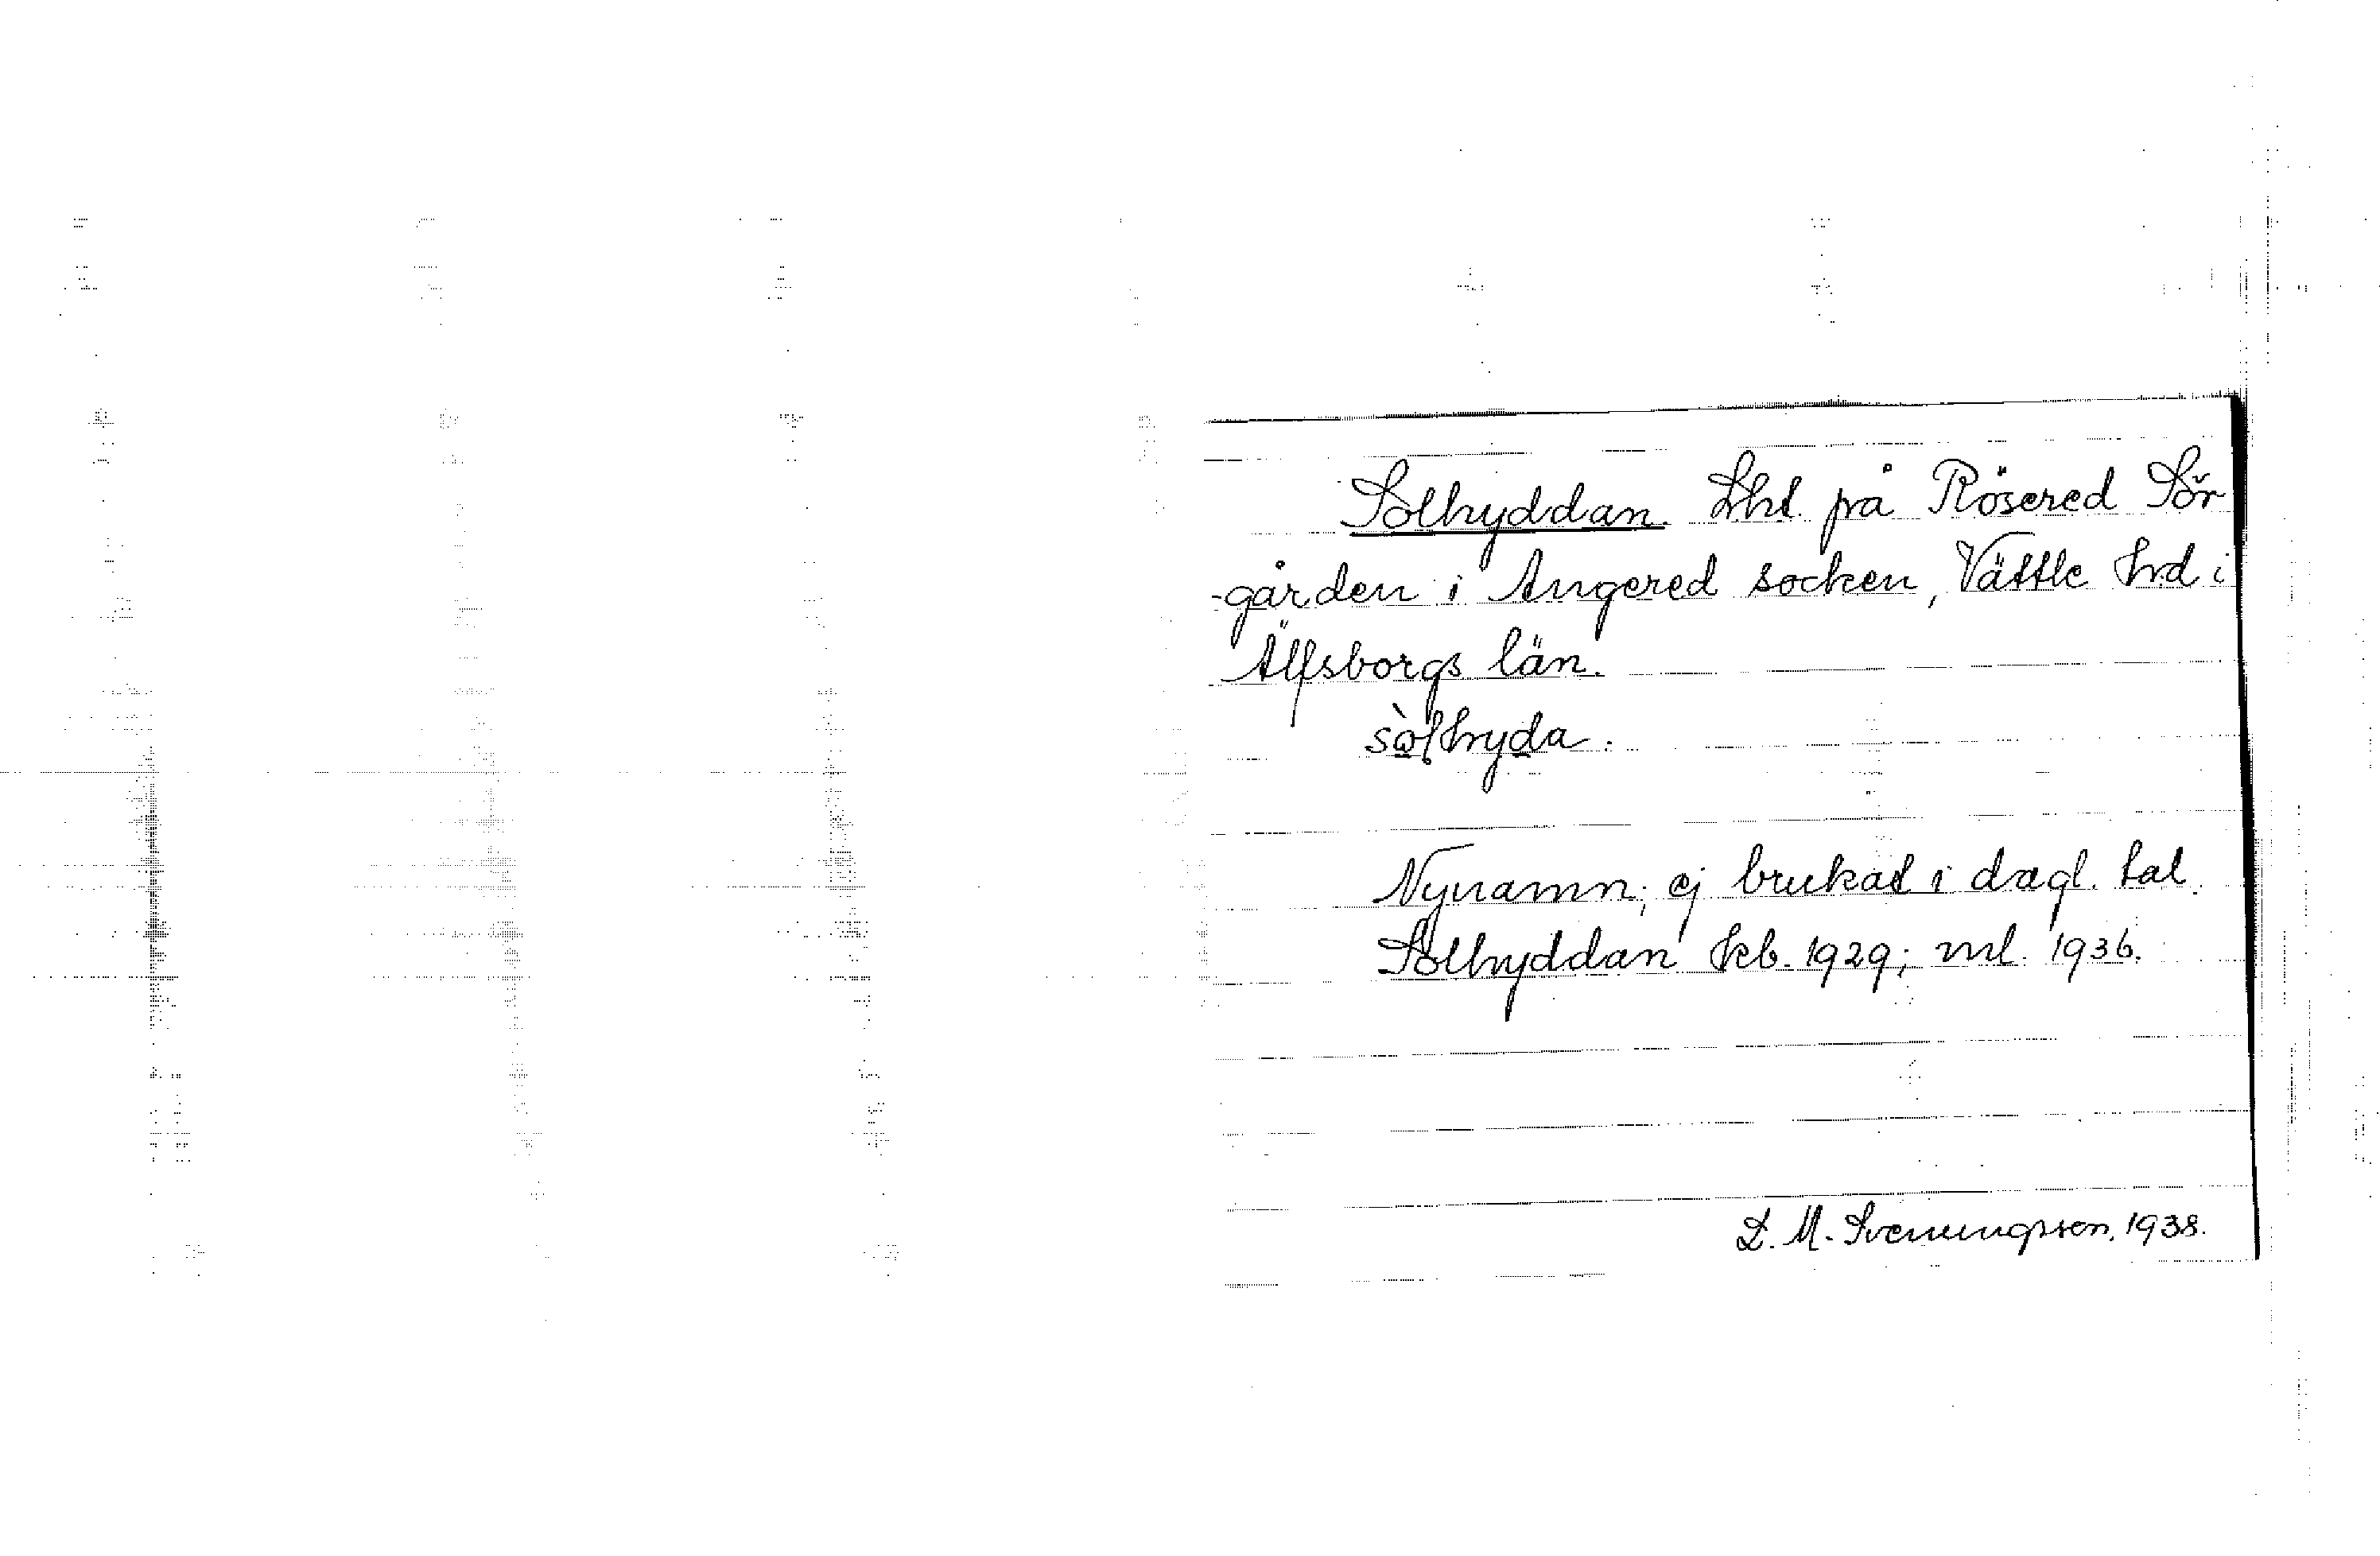 Solhyddan. Lht. på Rösered Sör
-gården i Angered socken, Vättle hrd i
Älfsborgs län.
sòlhyda.
Nynamn; ej brukat i dagl. tal.
Solhyddan kb. 1929; ml. 1936.
L. M. Svenungsson, 1938.